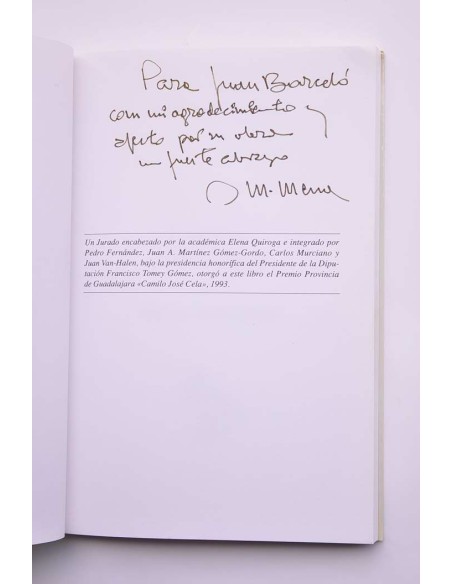 Para Juan Barceló
con mi agradecimiento y
afecto por su obra
un fuerte abrazo
M. 
Un Jurado encabezado por la académica Elena Quiroga e integrado por
Pedro Fernández, Juan A. Martínez Gómez-Gordo, Carlos Murciano y
Juan Van-Halen, bajo la presidencia honorífica del Presidente de la Dipu-
tación Francisco Tomey Gómez, otorgó a este libro el Premio Provincia
de Guadalajara «Camilo José Cela», 1993.